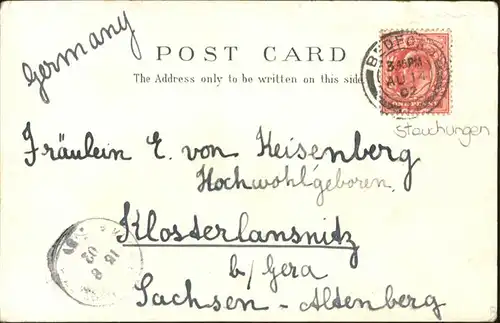 Germany
POST CARD
The Address only to be written on this side
BEDFO
3.45PM
AU 1
02
ONE PENNY
Stauchungen
Fräulein E. von Heisenberg
Hochwohlgeboren
Klosterlansnitz
b/Gera
Sachsen-Altenberg
15 8 02